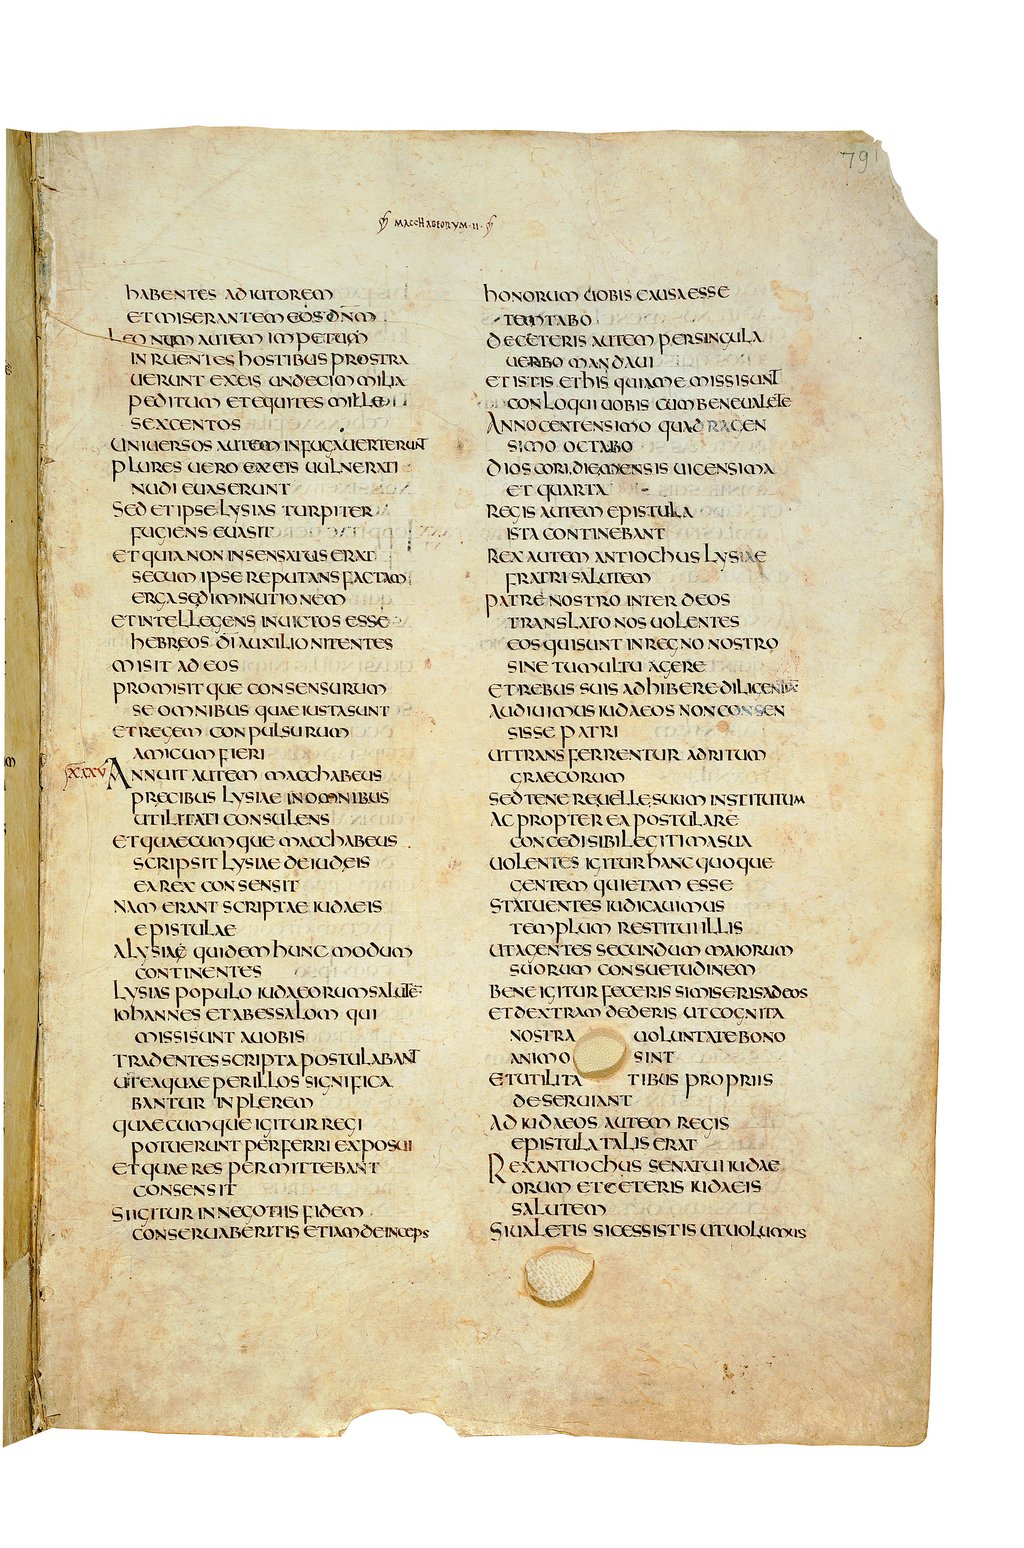 791
MACCHABEORUM · II ·
HABENTES ADIUTOREM
ET MISERANTEM EOS DNM
LEONUM AUTEM IMPETUM
INRUENTES HOSTIBUS PROSTRA
UERUNT EX EIS UNDECIM MILIA
PEDITUM ET EQUITES MILLE
SEXCENTOS
UNIUERSOS AUTEM IN FUGA UERTERUNT
PLURES UERO EX EIS UULNERATI
NUDI EUASERUNT
SED ET IPSE LYSIAS TURPITER
FUGIENS EUASIT
ET QUIA NON INSENSATUS ERAT
SECUM IPSE REPUTANS FACTAM
ERGA SE DIMINUTIONEM
ET INTELLEGENS INUICTOS ESSE
HEBREOS DI AUXILIO NITENTES
MISIT AD EOS
PROMISITQUE CONSENSURUM
SE OMNIBUS QUAE IUSTA SUNT
ET REGEM CONPULSURUM
AMICUM FIERI
XXXV ANNUIT AUTEM MACCHABEUS
PRECIBUS LYSIAE IN OMNIBUS
UTILITATI CONSULENS
ET QUAECUMQUE MACCHABEUS
SCRIPSIT LYSIAE DE IUDEIS
EA REX CONSENSIT
NAM ERANT SCRIPTAE IUDAEIS
EPISTULAE
A LYSIAE QUIDEM HUNC MODUM
CONTINENTES
LYSIAS POPULO IUDAEORUM SALUTE
IOHANNES ET ABESSALOM QUI
MISSI SUNT A UOBIS
TRADENTES SCRIPTA POSTULABANT
UT EA QUAE PER ILLOS SIGNIFICA
BANTUR INPLEREM
QUAECUMQUE IGITUR REGI
POTUERUNT PERFERRI EXPOSUI
ET QUAE RES PERMITTEBANT
CONSENSIT
SI IGITUR IN NEGOTIIS FIDEM
CONSERUABERITIS ETIAM DEINCEPS
HONORUM UOBIS CAUSA ESSE
TEMTABO
DE CETERIS AUTEM PER SINGULA
UERBO MANDAUI
ET ISTIS ET HIS QUI A ME MISSI SUNT
CONLOQUI UOBISCUM BENE UALETE
ANNO CENTENSIMO QUADRAGEN
SIMO OCTABO
DIOSCORI DIE MENSIS UICENSIMA
ET QUARTA
REGIS AUTEM EPISTULA
ISTA CONTINEBANT
REX AUTEM ANTIOCHUS LYSIAE
FRATRI SALUTEM
PATRE NOSTRO INTER DEOS
TRANSLATO NOS UOLENTES
EOS QUI SUNT IN REGNO NOSTRO
SINE TUMULTU AGERE
ET REBUS SUIS ADHIBERE DILIGENTIA
AUDIUIMUS IUDAEOS NON CONSEN
SISSE PATRI
UT TRANSFERRENTUR AD RITUM
GRAECORUM
SED TENERE UELLE SUUM INSTITUTUM
AC PROPTEREA POSTULARE
CONCEDI SIBI LEGITIMA SUA
UOLENTES IGITUR HANC QUOQUE
GENTEM QUIETAM ESSE
STATUENTES IUDICAUIMUS
TEMPLUM RESTITUI ILLIS
UT AGENTES SECUNDUM MAIORUM
SUORUM CONSUETUDINEM
BENE IGITUR FECERIS SI MISERIS AD EOS
ET DEXTRAM DEDERIS UT COGNITA
NOSTRA UOLUNTATE BONO
ANIMO SINT
ET UTILITATIBUS PROPRIIS
DESERUIANT
AD IUDAEOS AUTEM REGIS
EPISTULA TALIS ERAT
REX ANTIOCHUS SENATUI IUDAE
ORUM ET CETERIS IUDAEIS
SALUTEM
SI UALETIS SIC ESSISTIS UT UOLUMUS